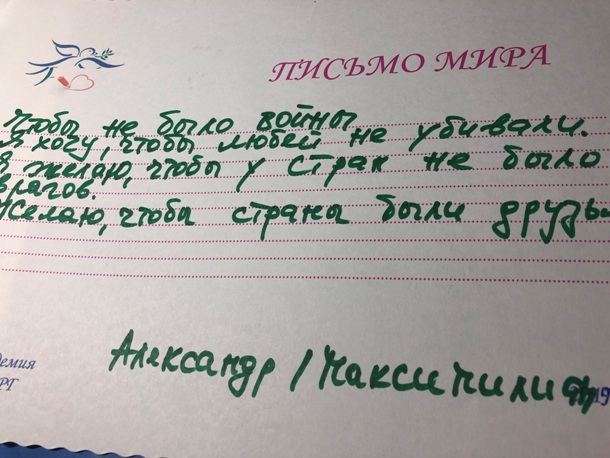 ПИСЬМО МИРА
Чтобы не было войны
я хочу, чтобы людей не убивали.
я желаю, чтобы у стран не было
врагов.
желаю, чтобы страны были друзь
Александр / Максимилиан
демия
РТ
19